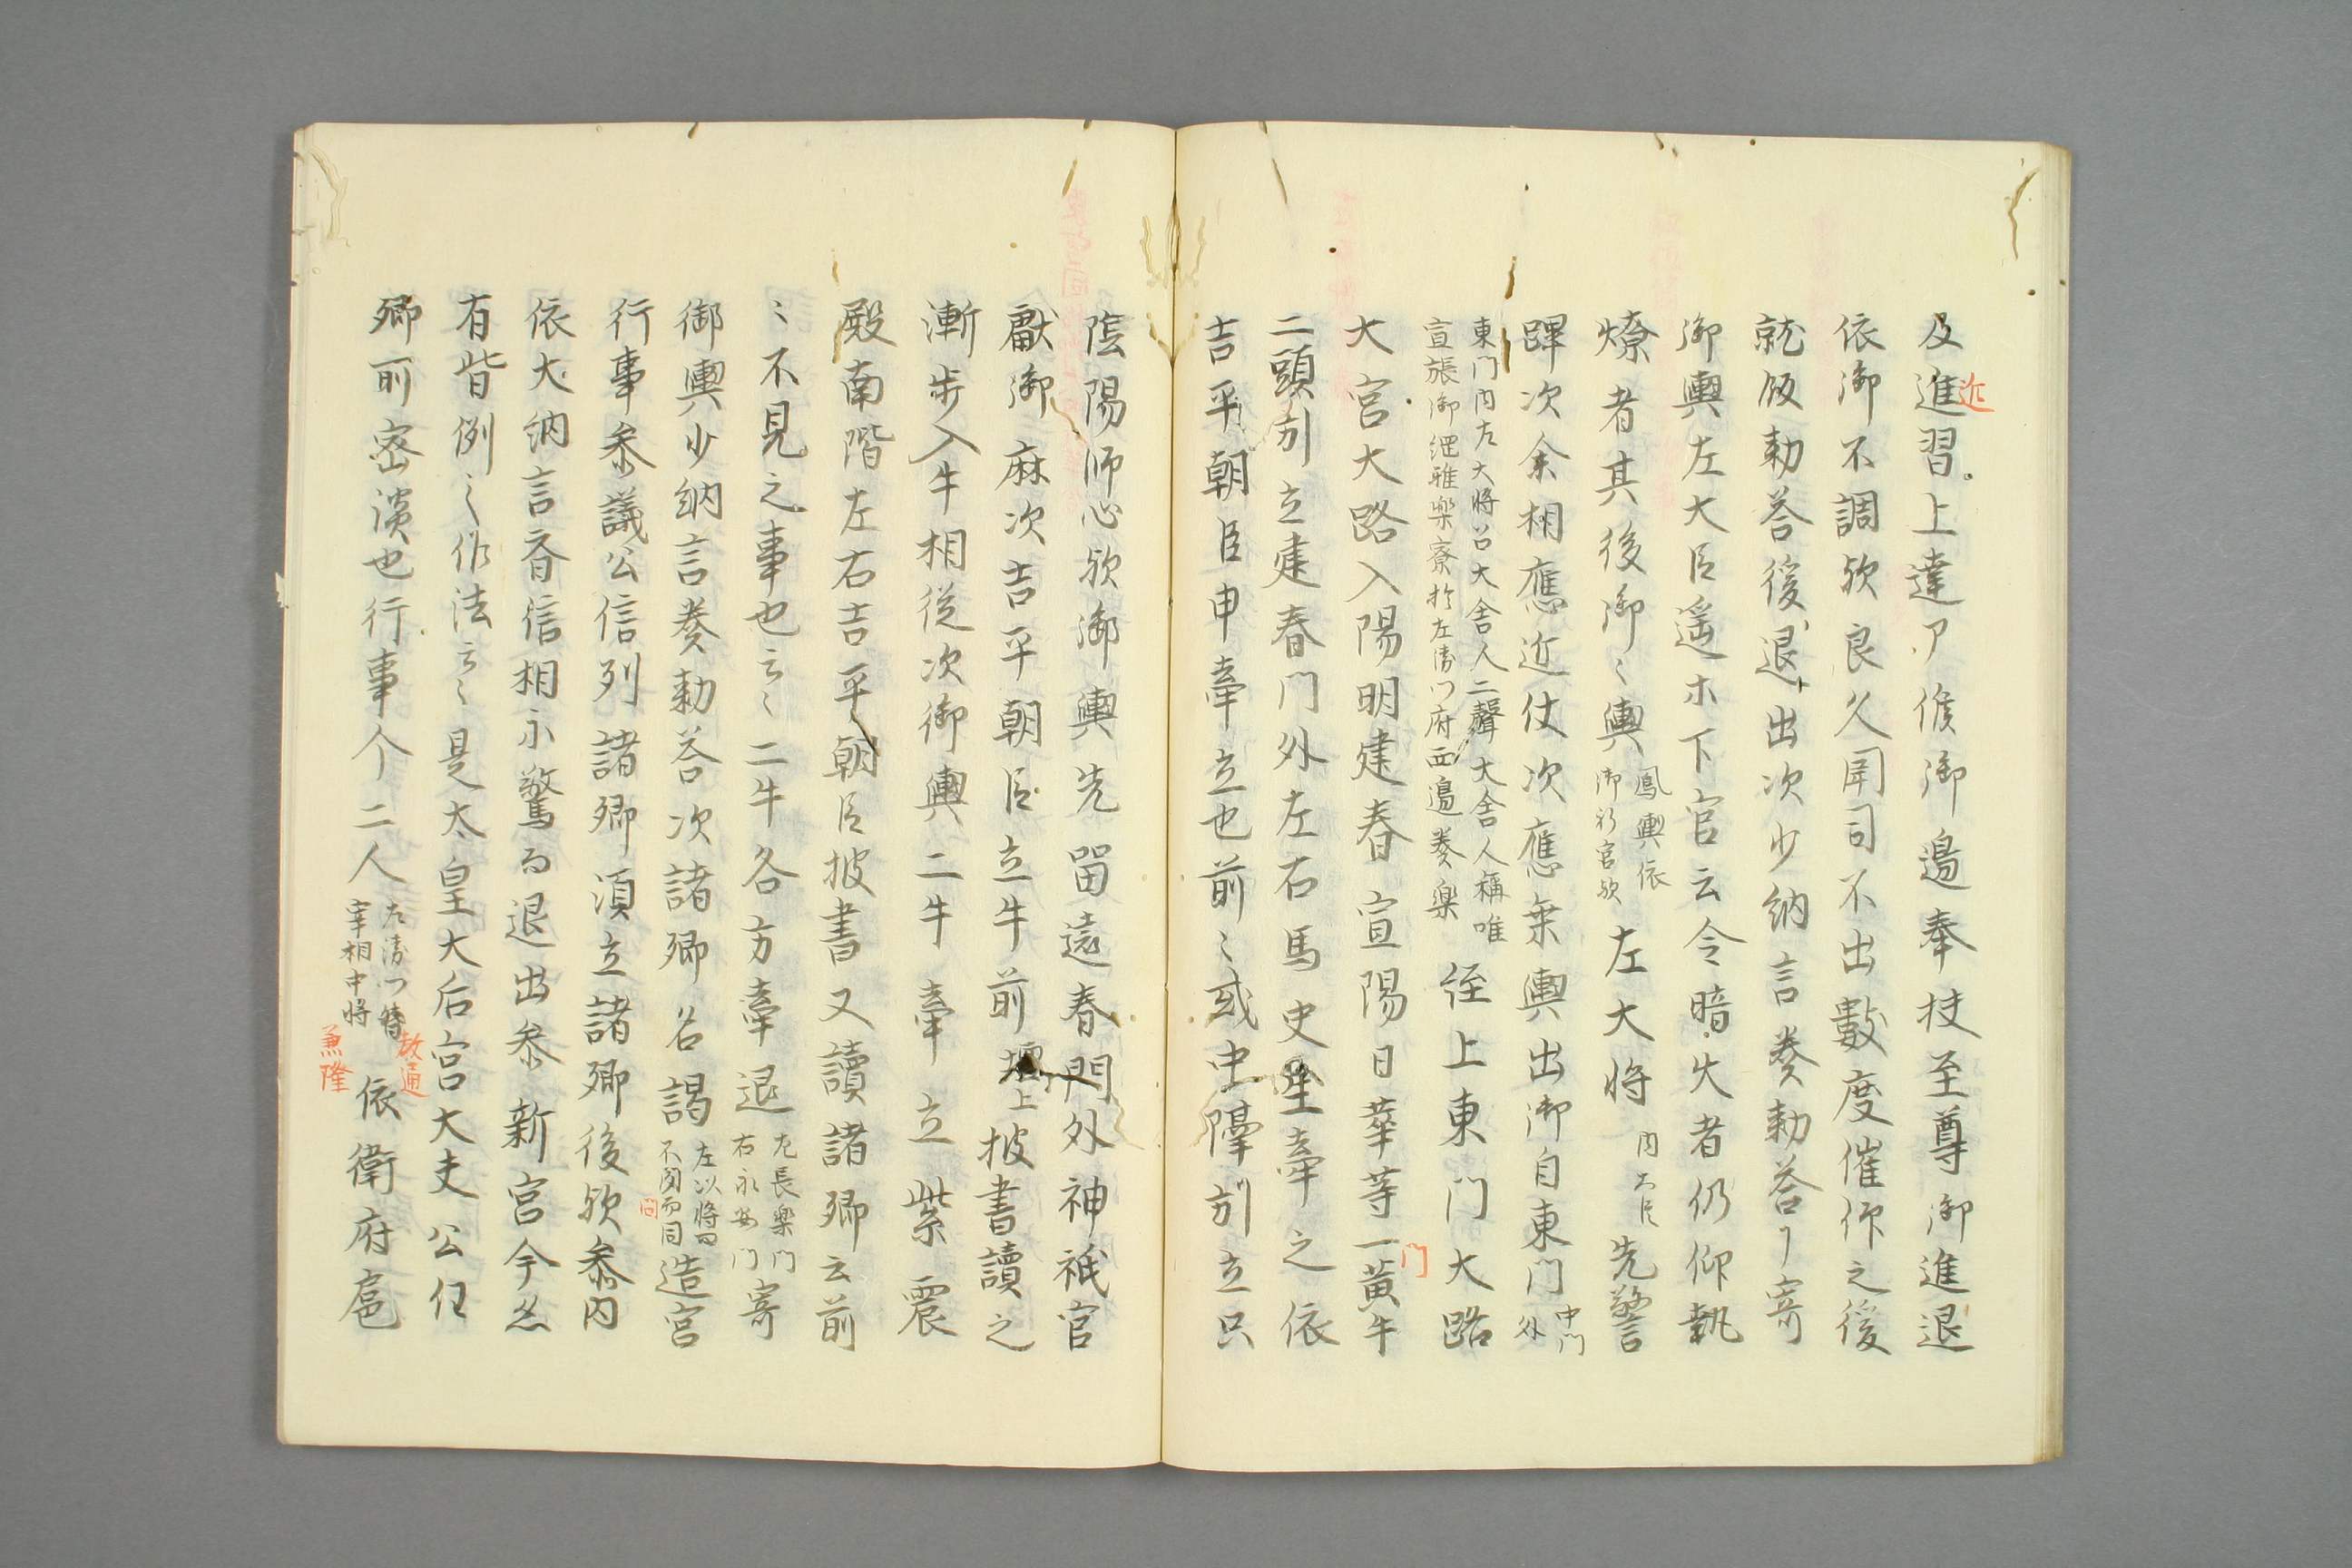 及進習上達了候御邊奉扶至尊御進退
近
依御不調欤良久闈司不出數度催仰之後
就版勅荅後退出次少納言奏勅荅了寄
御輿左大臣遥示下官云令暗火者仍仰執
燎者其後御〻輿鳳輿依御新宮欤左大将内大臣先警
蹕次余相應近仗次應乗輿出御自東門中門外
東門内左大将召大舎人二聲大舎人稱唯
宣張御綱雅樂寮於左衛门府西邉奏樂
経上東門大路
大宮大路入陽明建春宣陽日華等一黄牛
门
二頭引立建春門外左右馬史生牽之依
吉平朝臣申牽立也前〻或史陰引立只
陰陽師心欤御輿先留遠春門外神祇官
獻御麻次吉平朝臣立牛前壇上披書讀之
漸步入牛相從次御輿二牛牽立紫震
殿南階左右吉平朝臣披書又讀諸卿云前
〻不見之事也云〻二牛各方牽退左長樂門右永安门寄
御輿少納言奏勅荅次諸卿名謁左以将曰不問而同造宮
問
行事参議公信列諸卿湏立諸卿後欤参内
依大納言斉信相示驚而退出参新宮今忽
有皆例之作法云〻是太皇大后宮大夫公任
卿所密談也行事个二人左衛门督宰相中将依衛府扈
教通
兼隆